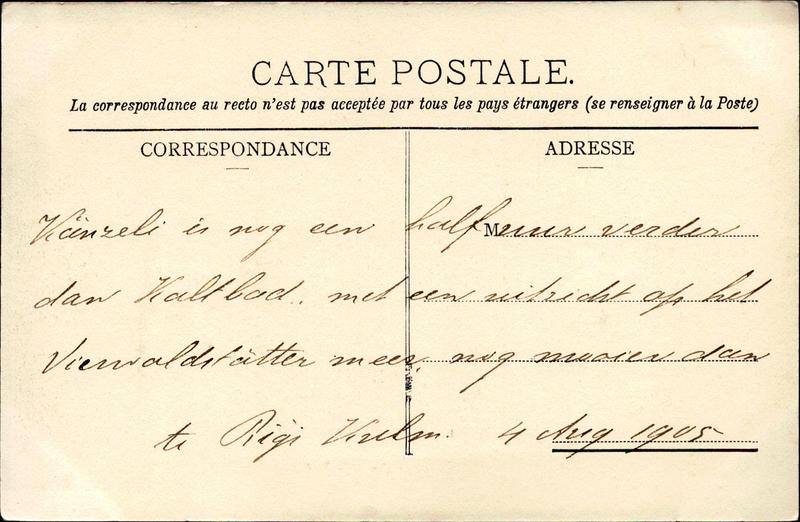 CARTE POSTALE.
La correspondance au recto n'est pas acceptée par tous les pays étrangers (se renseigner à la Poste)
CORRESPONDANCE
ADRESSE
M
Känzeli is nog een half uur verder
dan Kaltbad. met een uitzicht op het
Vierwaldstätter meer, nog mooier dan
te Rigi Kulm. 4 Aug 1905